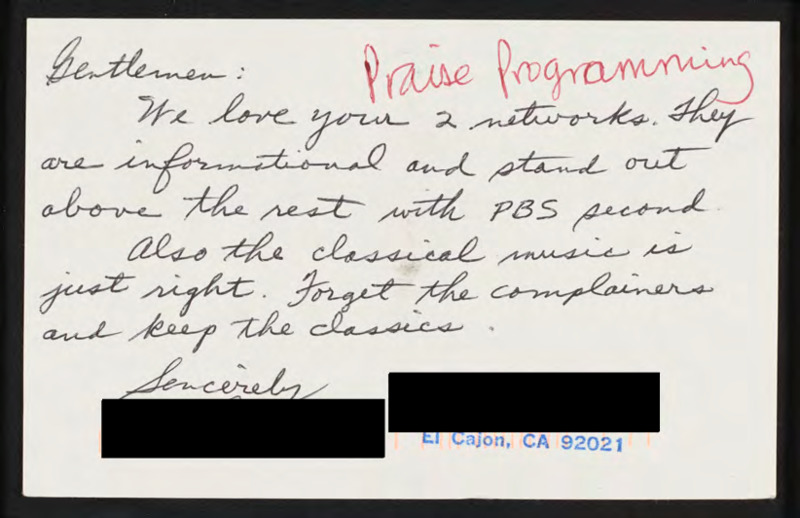 Gentlemen:
Praise Programming
We love your 2 networks. They
are informational and stand out
above the rest with PBS second.
Also the classical music is
just right. Forget the complainers
and keep the classics.
Sencerely
El Cajon, CA 92021